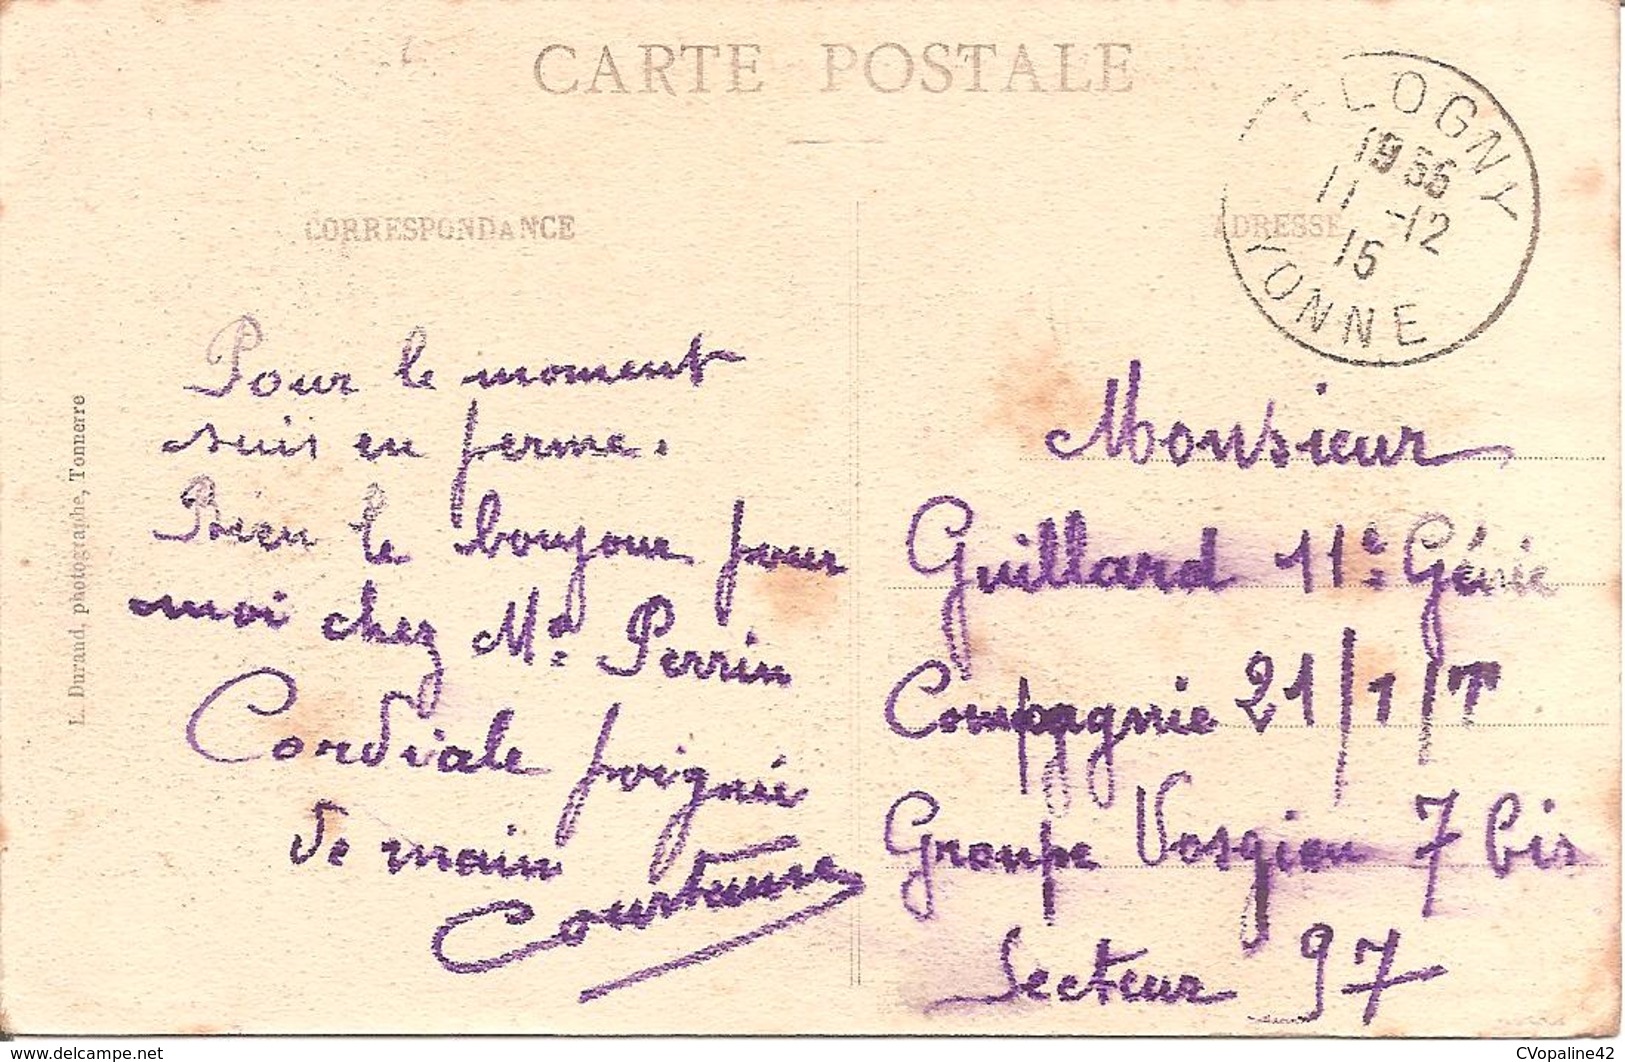 CARTE POSTALE
FLOGNY
1935
11 -12
15
YONNE
CORRESPONDANCE
ADRESSE
L. Durand, photographe, Tonnerre
Pour le moment
suis en ferme.
Bien le boujour pour
moi chez Md Perrin
Cordiale poignée
de main
Monsieur
Guillard 11e Génie
Compagnie 21/1/T
Groupe Vosgien 7 bis
Secteur 97
CVopaline42